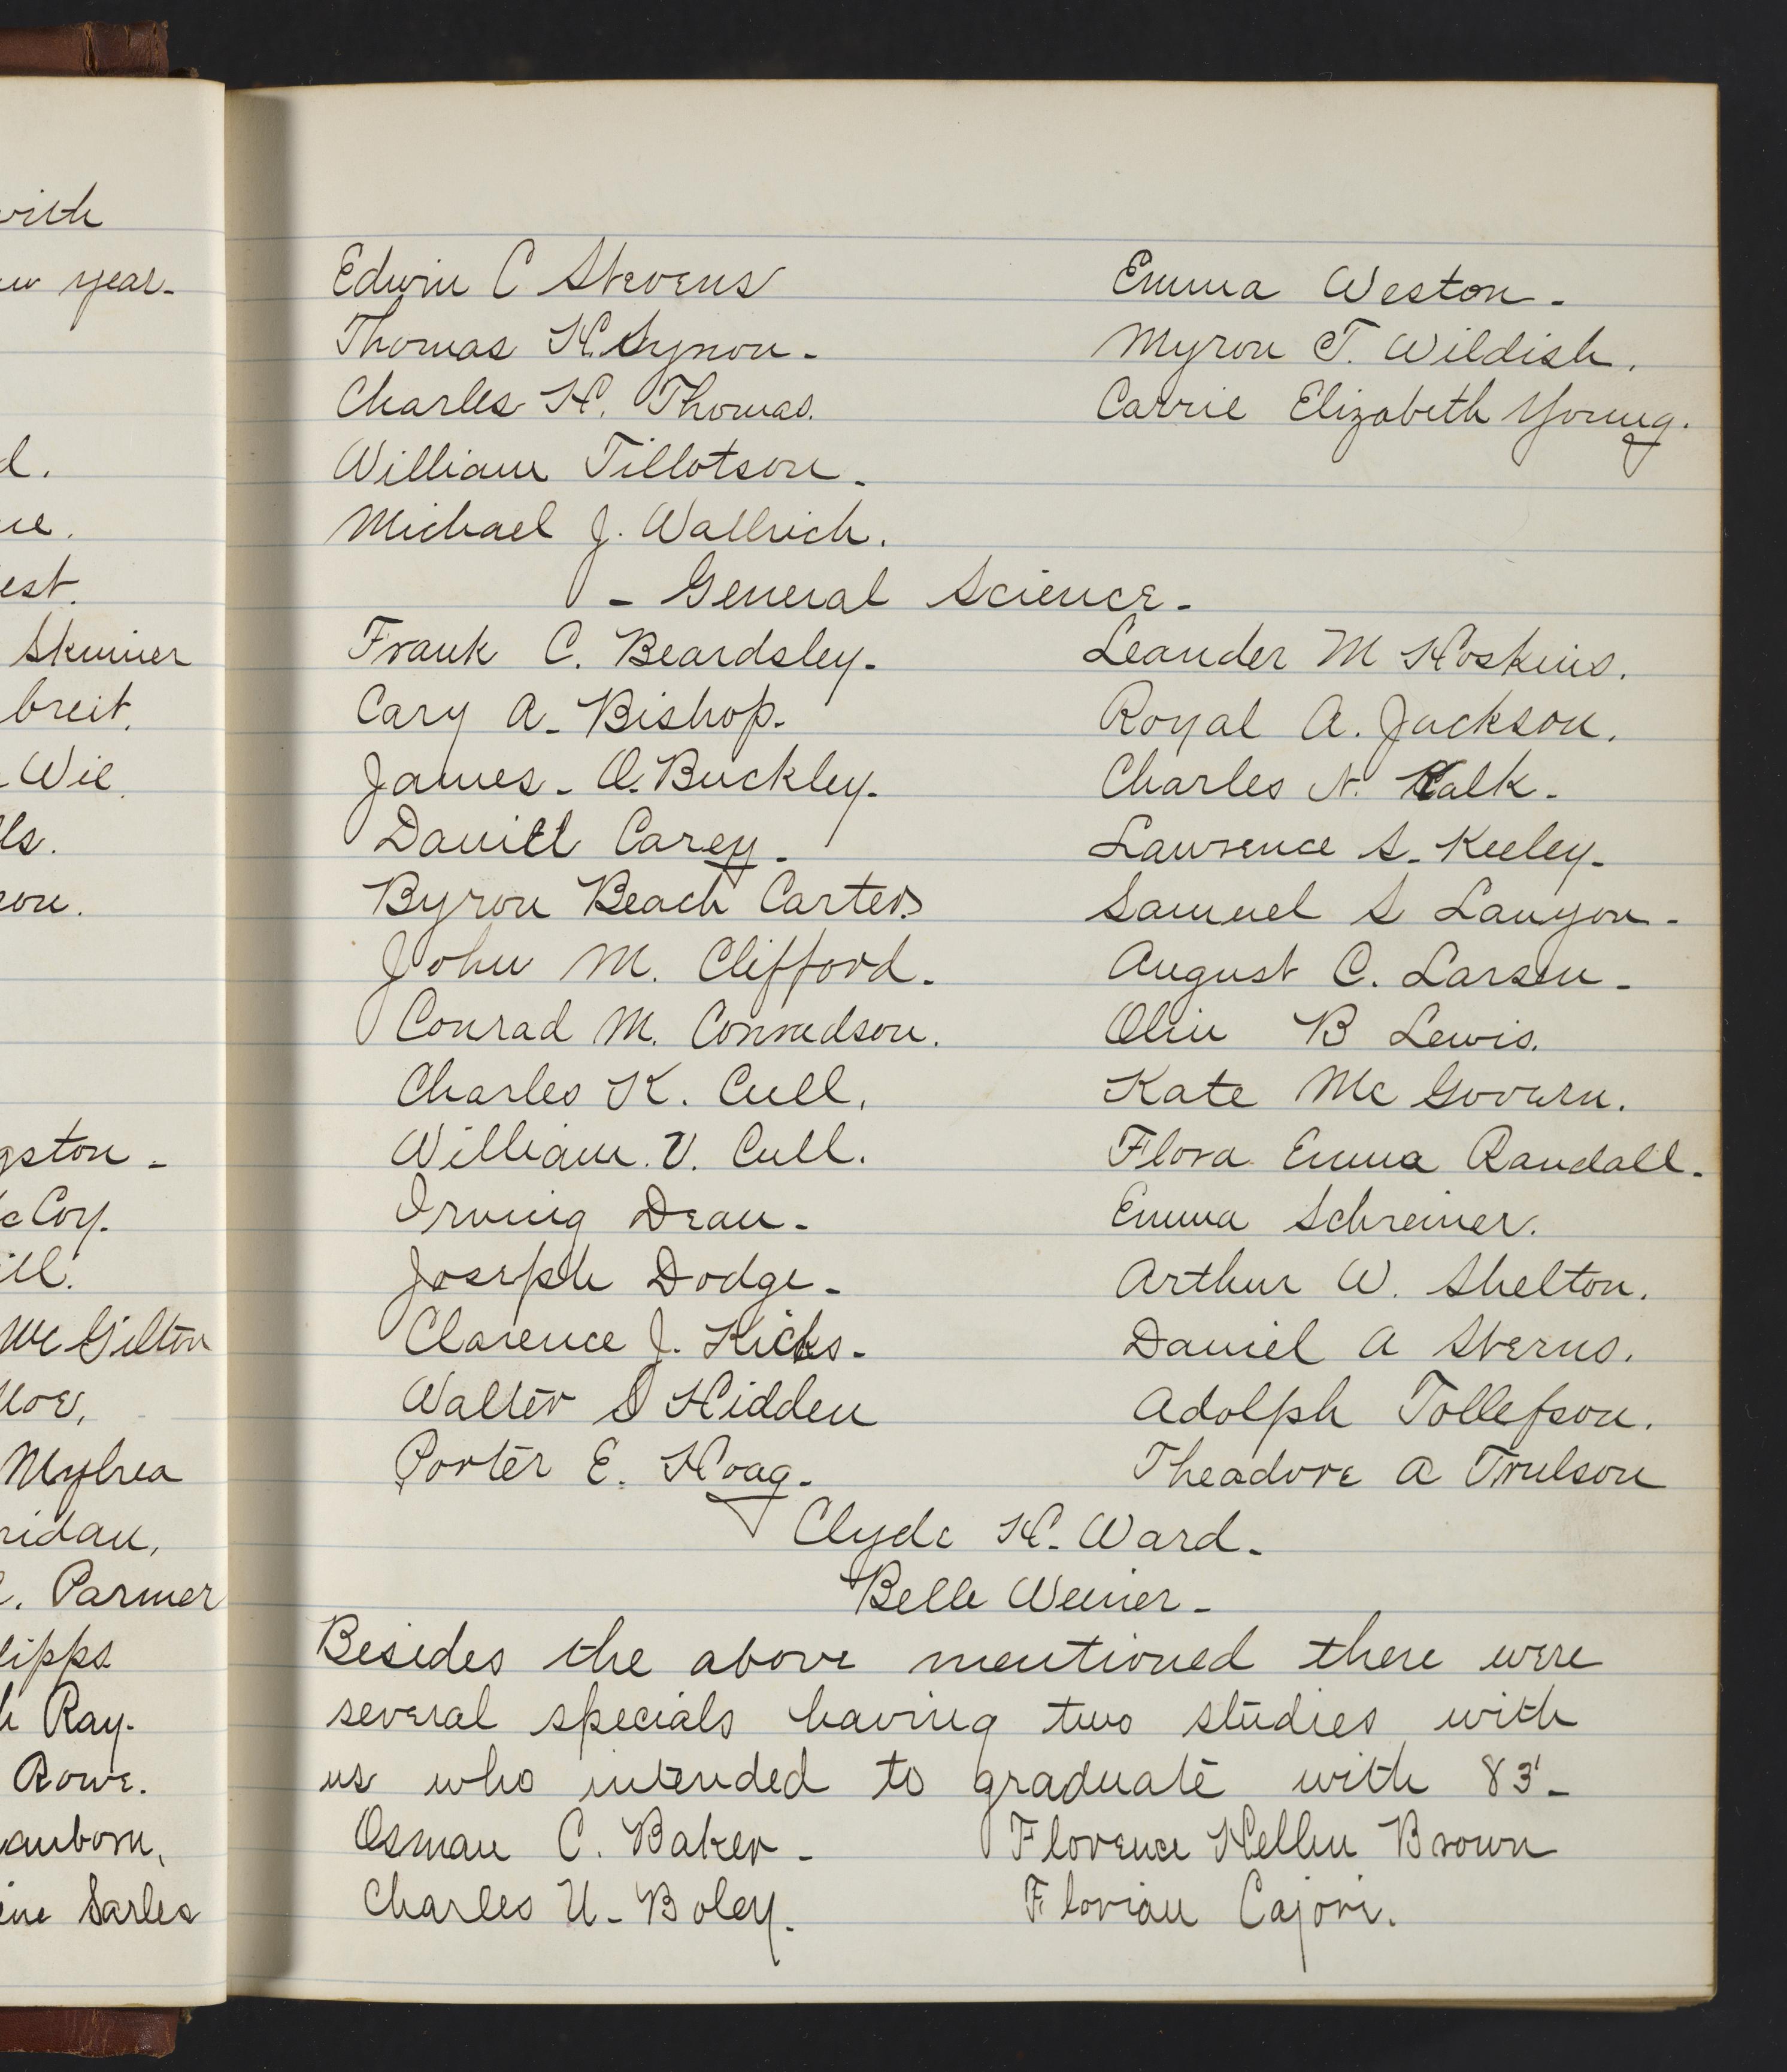 with
year-
d.
est.
Skinner
breit.
Wil
ls.
son.
gston -
Coy.
ill.
Mc Gilton
Mylrea
ridan,
Parmer
lipps
h Ray.
Rowe.
anborn,
Sarles
Edwin C Stevens
Emma Weston -
Thomas H. Synon -
Myron T. Wildish.
Charles H. Thomas.
Carrie Elizabeth Young.
William Tillotson -
Michael J. Wallrich.
- General Science -
Frank C. Beardsley -
Leander M Hoskins.
Cary A - Bishop.
Royal A. Jackson.
James - O. Buckley -
Charles N. Kalk -
Daniel Carey -
Lawrence S. Keeley -
Byron Beach Carter.
Samuel S Lanyon -
John M. Clifford -
August C. Larsen -
Conrad M. Conradson.
Olin B Lewis.
Charles K. Cull.
Kate Mc Govern.
William V. Cull.
Flora Emma Randall -
Irving Dean -
Emma Schreiner.
Joseph Dodge -
Arthur W. Shelton.
Clarence J. Hicks -
Daniel A Sterns.
Walter S Hidden
Adolph Tollefson.
Porter E. Hoag -
Theadore A Trulson
Clyde H. Ward -
Belle Weiner -
Besides the above mentioned there were
several specials having two studies with
us who intended to graduate with 83' -
Osman C. Baker -
Florence Hellen Brown
Charles U - Boley.
Florian Cajori.